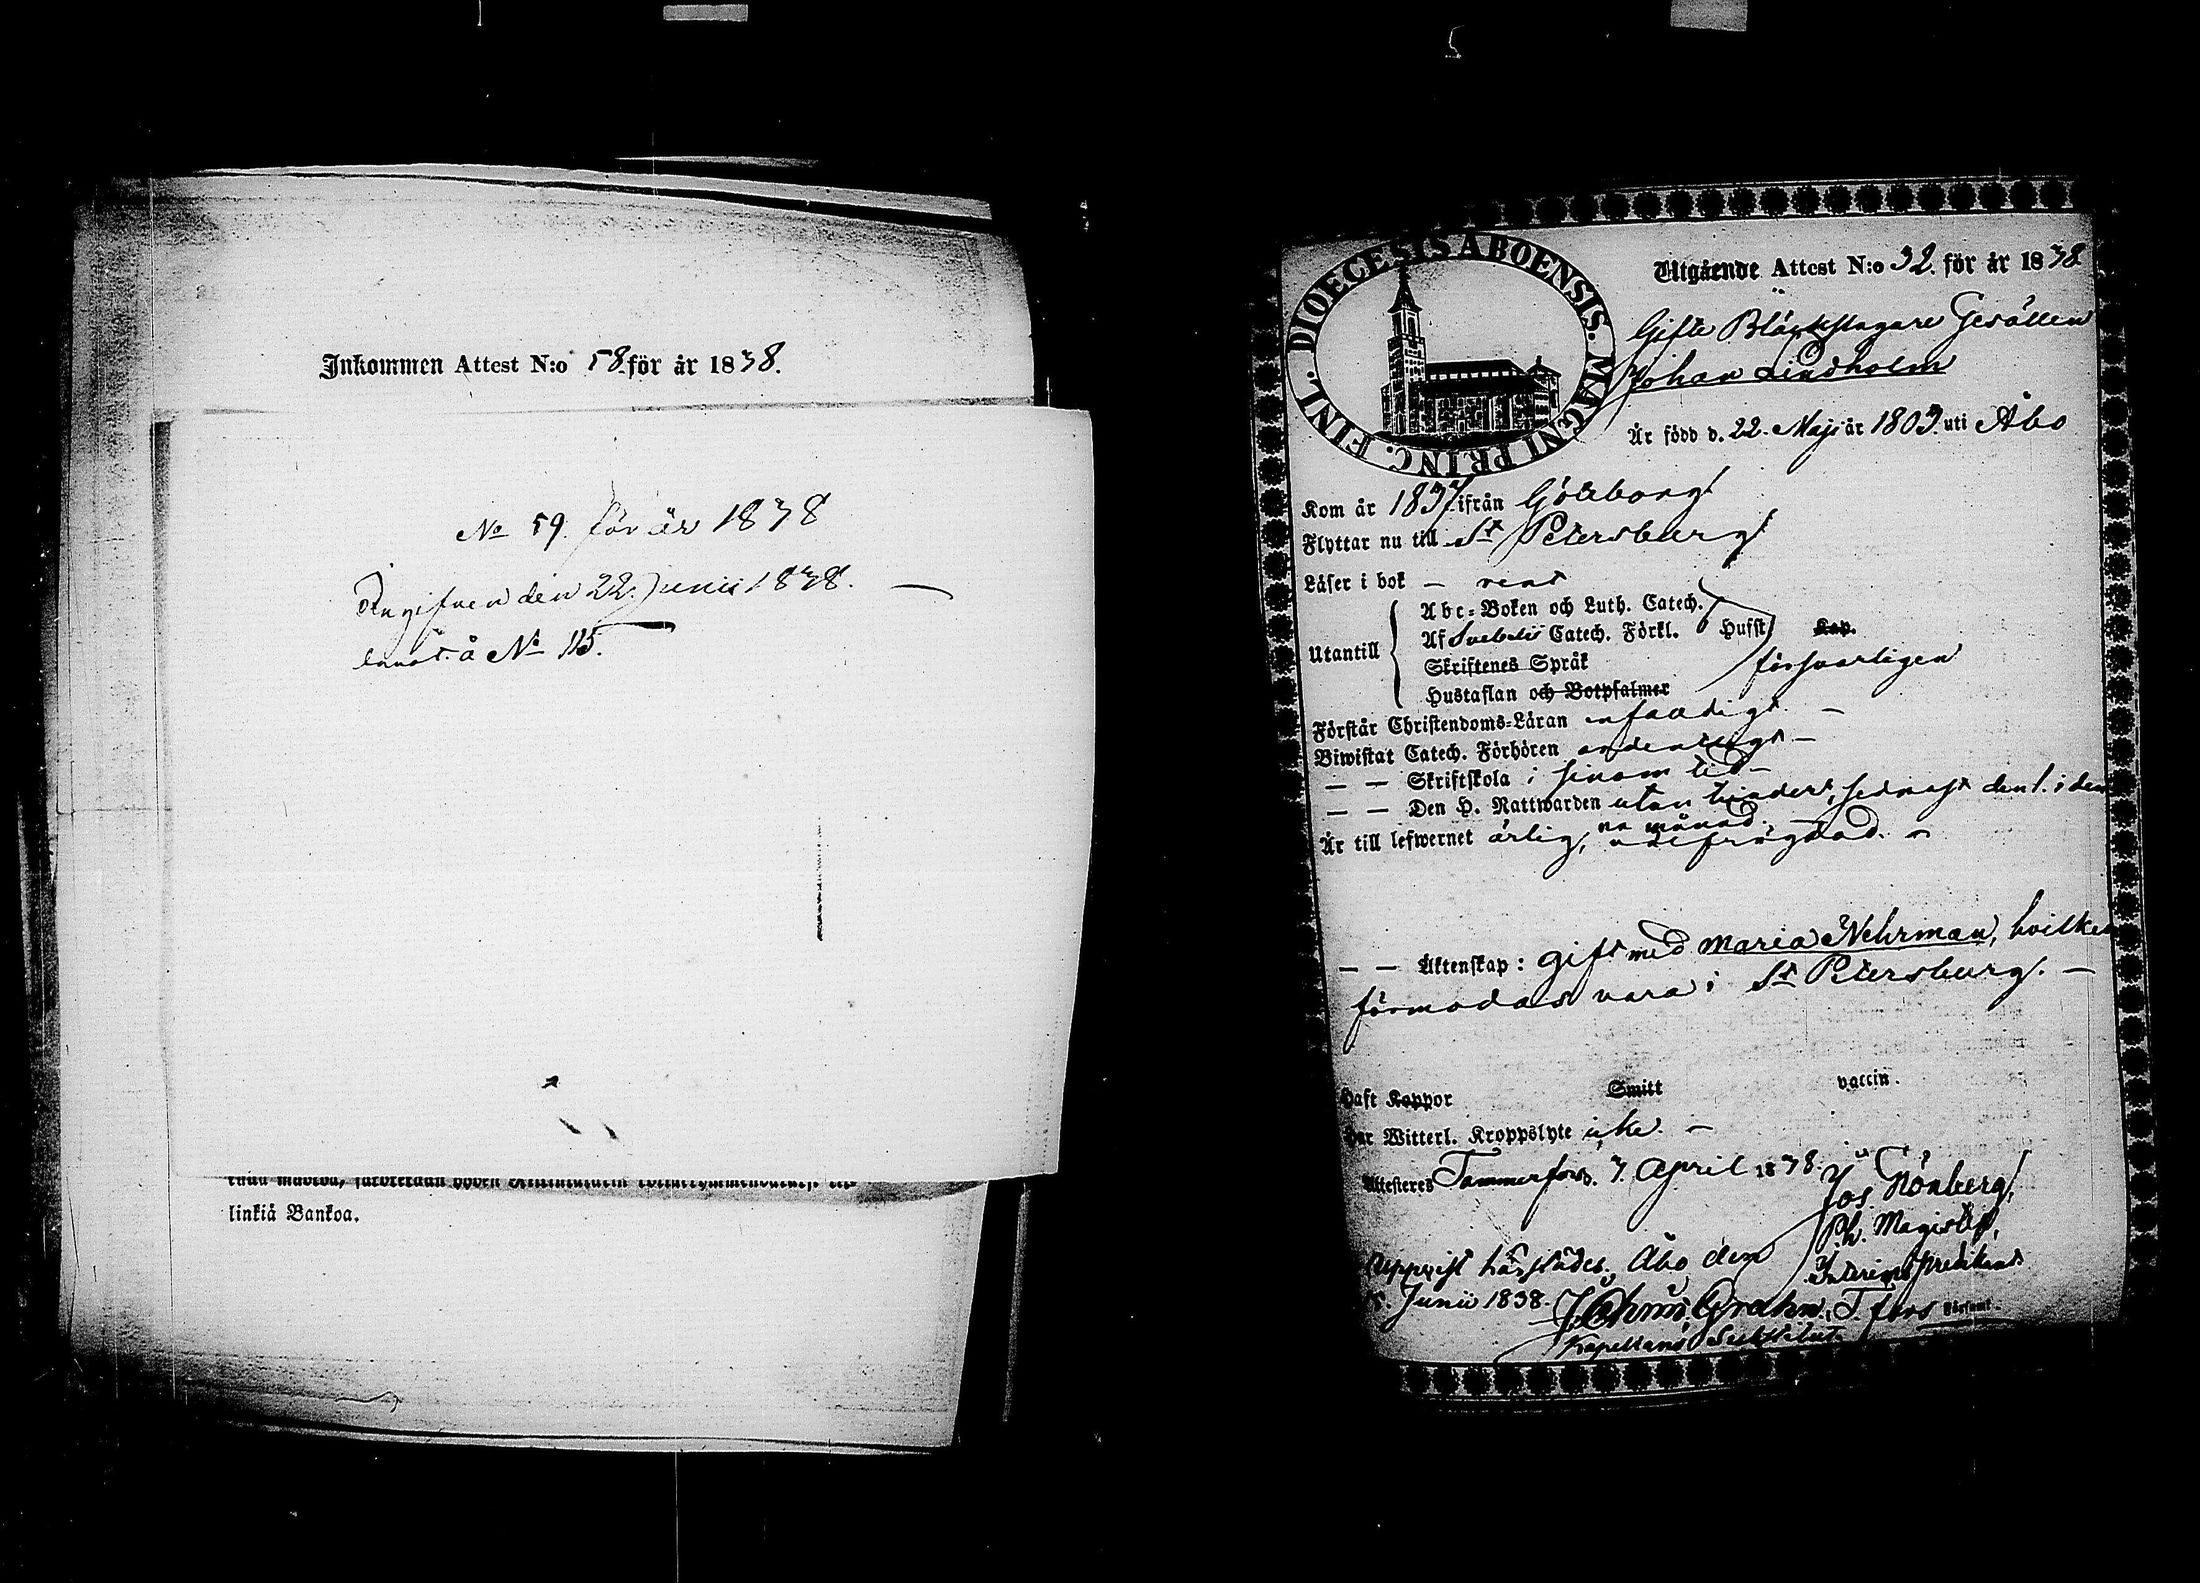 5
Inkommen Attest N:o 58 för år 1838.
No 59. för år 1838
Angifven den 22. Junii 1838. —
å No 115.
linkiä Bankoa.
DIOECESIS ABOENSIS. MAGNI PRINC. FINL.
Utgående Attest N:o 32. för år 1838
Gifte Bläckslagare Gesällen
Johan Lindholm
Är född d. 22. Maji år 1803. uti Åbo
Kom år 1837. ifrån Göteborg
Flyttar nu till St Petersburg
Läser i bok — rent
Utantill
Abc-Boken och Luth. Catech.
Af Svebelii Catech. Förkl. Hufst. Kap.
Skriftenes Språk försvarligen
Hustaflan och Botpsalmer
Förstår Christendoms-Läran enfaldigt. —
Biwistat Catech. Förhören ordentligt —
— — Skriftskola i sinom tid —
— — Den H. Nattwarden utan hinder, sednast den 1. i den
na månad.
Är till lefwernet ärlig, —
— — Äktenskap: gift med Maria Nehrman, hvilken
förmodas vara i St Petersburg. —
Haft Koppor Smitt vaccin.
Har Witterl. Kroppslyte icke. —
Attesteres Tammerfors d. 7. April 1838.
Jos. Grönberg,
Ph. Magister,
Interims predikant
T.fors Församl.
Uppvist härstädes, Åbo den
5. Junii 1838. Grahn,
Kapellans Substitut.